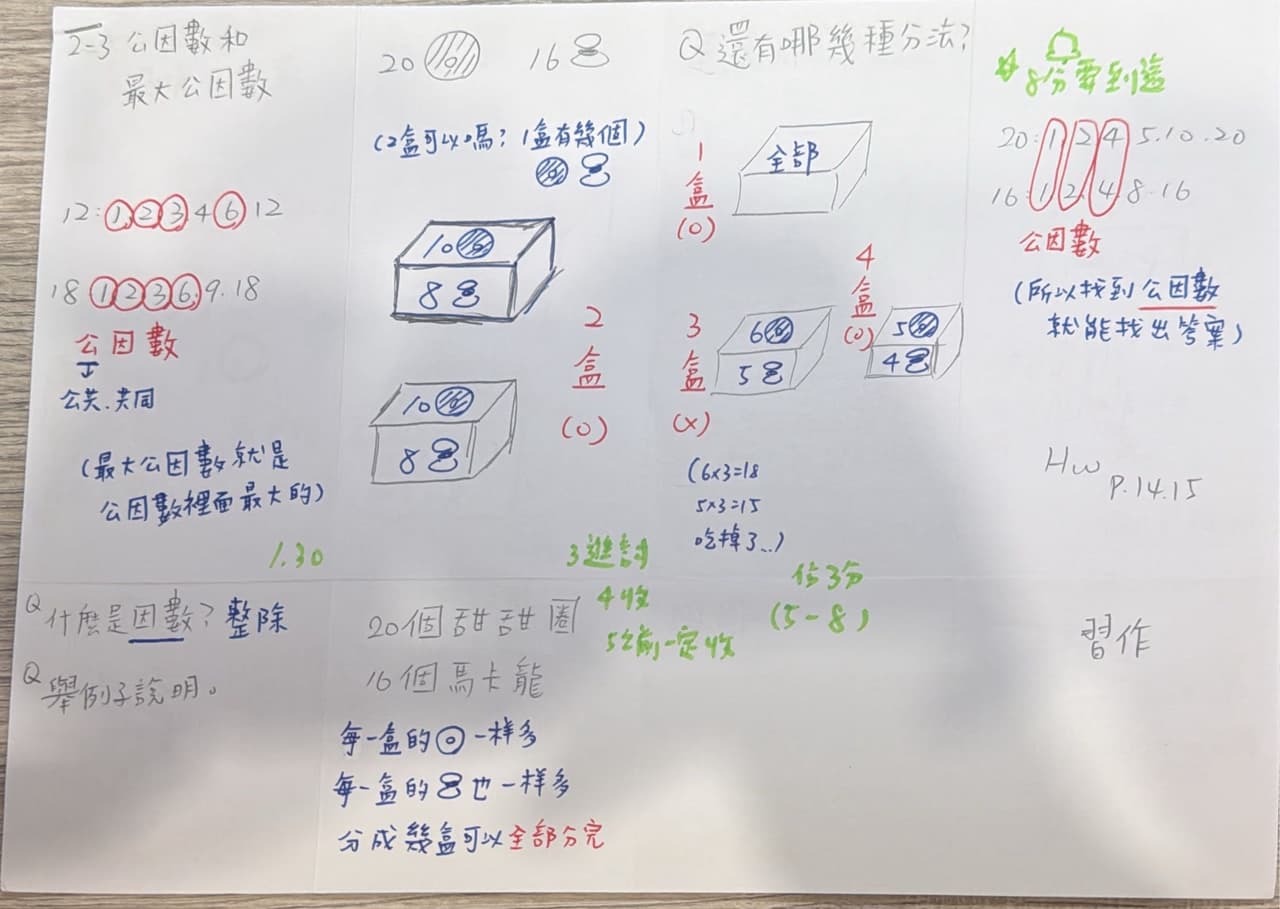 2-3 公因數和
最大公因數
12: 1, 2 3 4 6 12
18 1 2 3 6. 9. 18
公因數
公共、共同
(最大公因數就是
公因數裡面最大的)
1.30
Q 什麼是因數? 整除
Q 舉例子說明。
20 16
(2盒可以嗎? 1盒有幾個)
10
8
10
8
2盒(O)
3進討
4收
5之前一定收
20個甜甜圈
16個馬卡龍
每一盒的 一样多
每一盒的 也一样多
分成幾盒可以全部分完
Q 還有哪幾種分法?
1盒(O)
全部
3盒(X)
6
5
4盒(O)
5
4
(6×3=18
5×3=15
吃掉了...)
估3分
(5-8)
8分要到這
20: 1 2 4 5. 10. 20
16: 1 2. 4. 8. 16
公因數
(所以找到公因數
就能找出答案)
Hw
P.14.15
習作